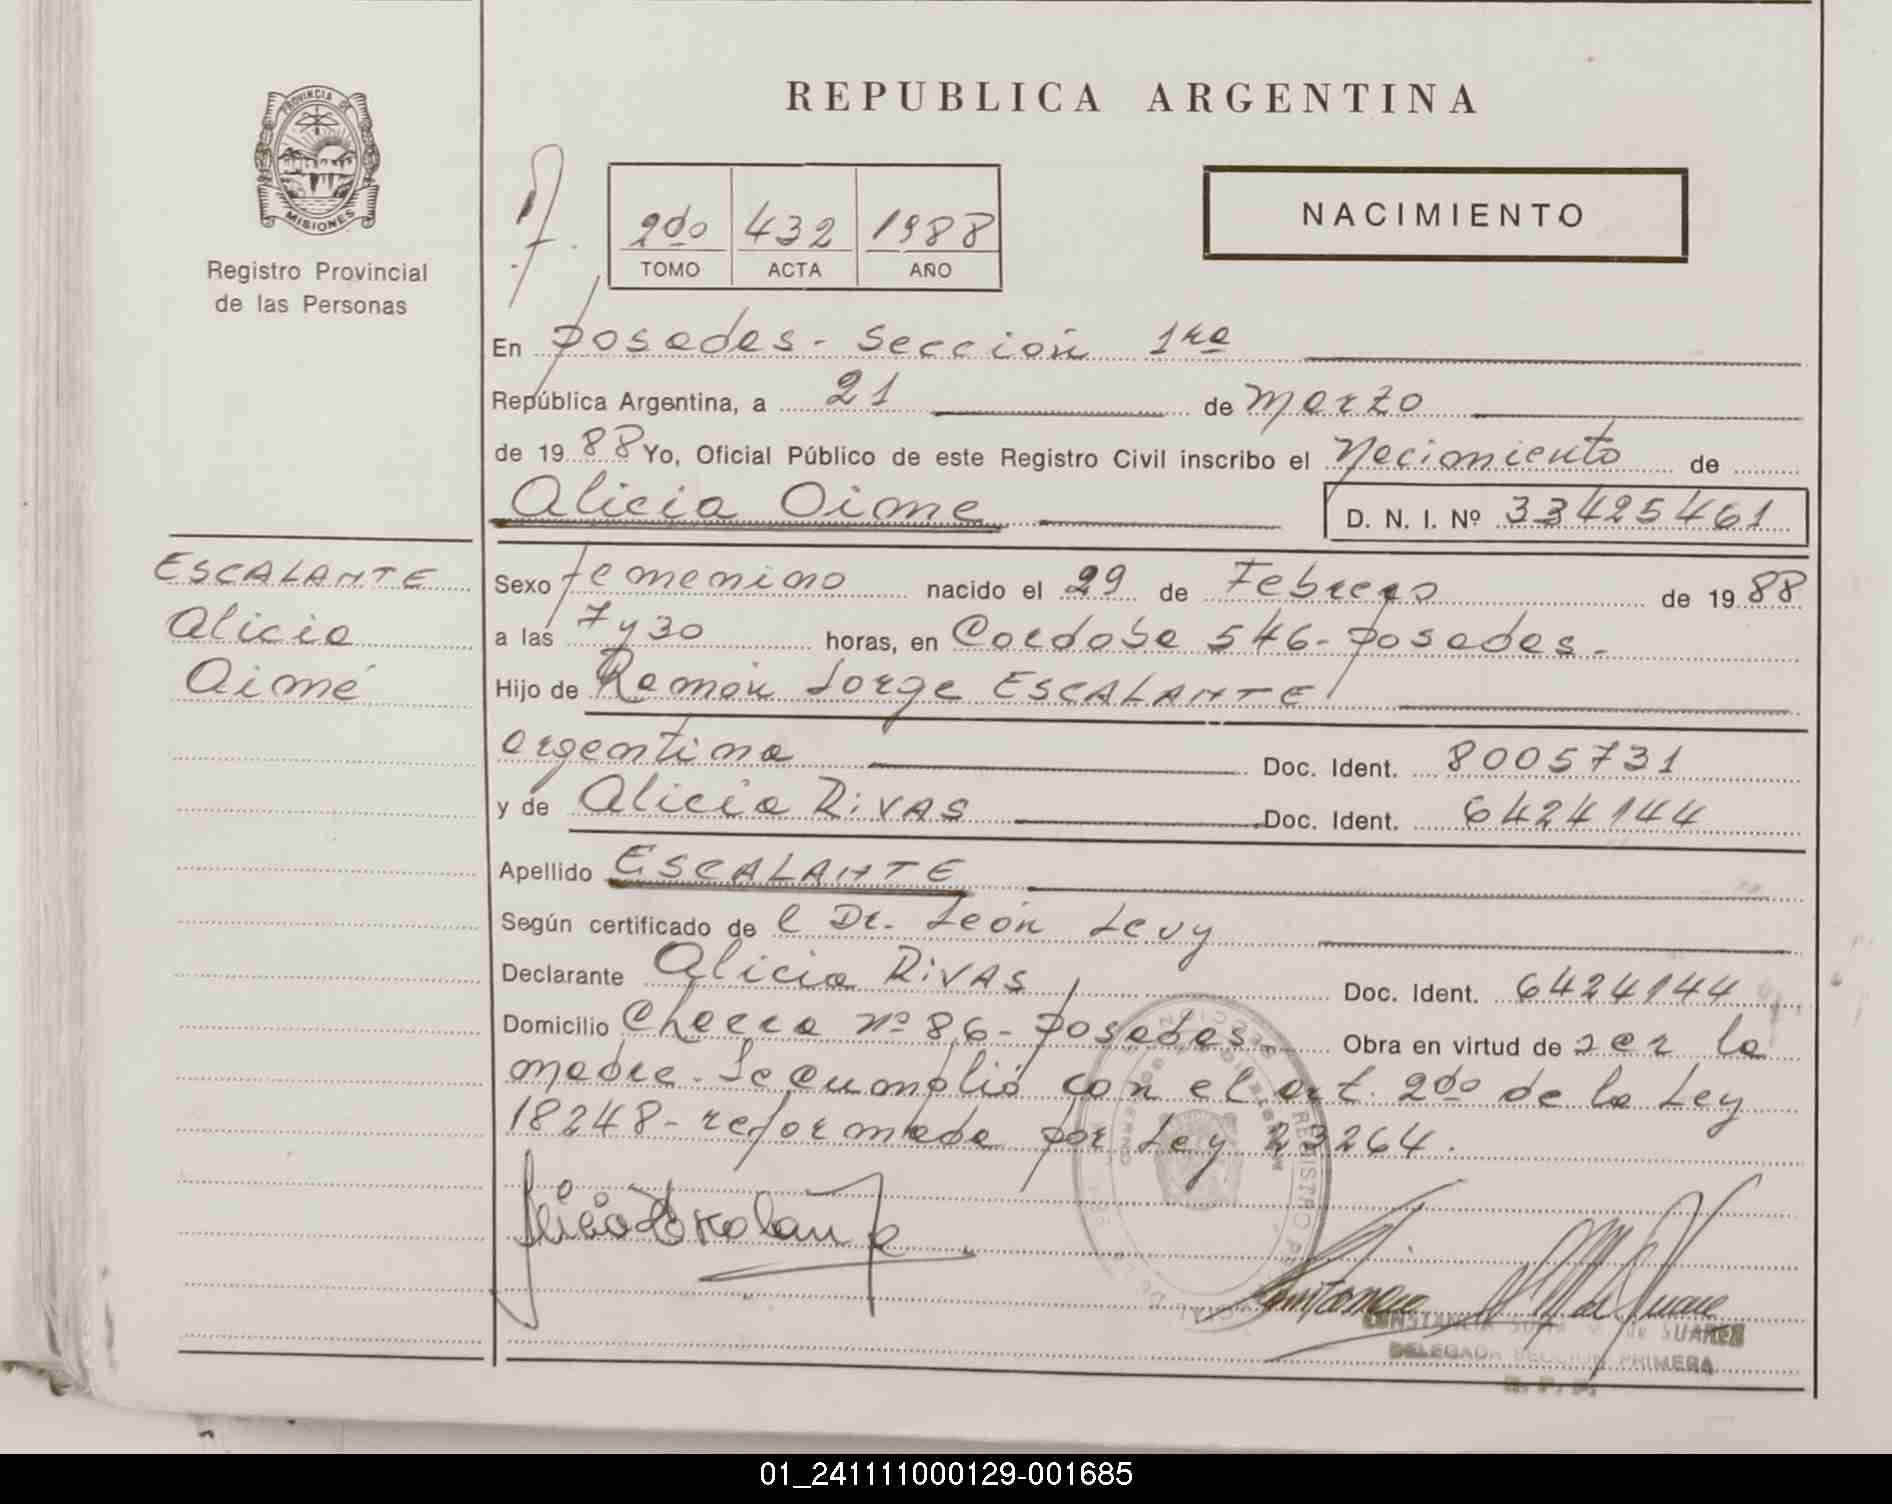 REPUBLICA ARGENTINA
PROVINCIA DE
MISIONES
Registro Provincial
de las Personas
2do 432 1988
TOMO ACTA AÑO
NACIMIENTO
En Posadas - Sección 1ra
República Argentina, a 21 de Marzo
de 1988 Yo, Oficial Público de este Registro Civil inscribo el Nacimiento de
Alicia Aime
D. N. I. Nº 33425461
ESCALANTE
Alicia
Aimé
Sexo femenino nacido el 29 de Febrero de 1988
a las 7 y 30 horas, en Cordoba 546 - Posadas -
Hijo de Ramón Jorge ESCALANTE
argentina Doc. Ident. 8005731
y de Alicia RIVAS Doc. Ident. 6424144
Apellido ESCALANTE
Según certificado de l Dr. León Levy
Declarante Alicia RIVAS Doc. Ident. 6424144
Domicilio Chacra nº 86 - Posadas - Obra en virtud de ser la
madre - Se cumplió con el art. 2do de la Ley
18248 - reformada por Ley 23264.
CONSTANCIA de SUAREZ
DELEGADA SECCION PRIMERA
R. P. P.
01_241111000129-001685